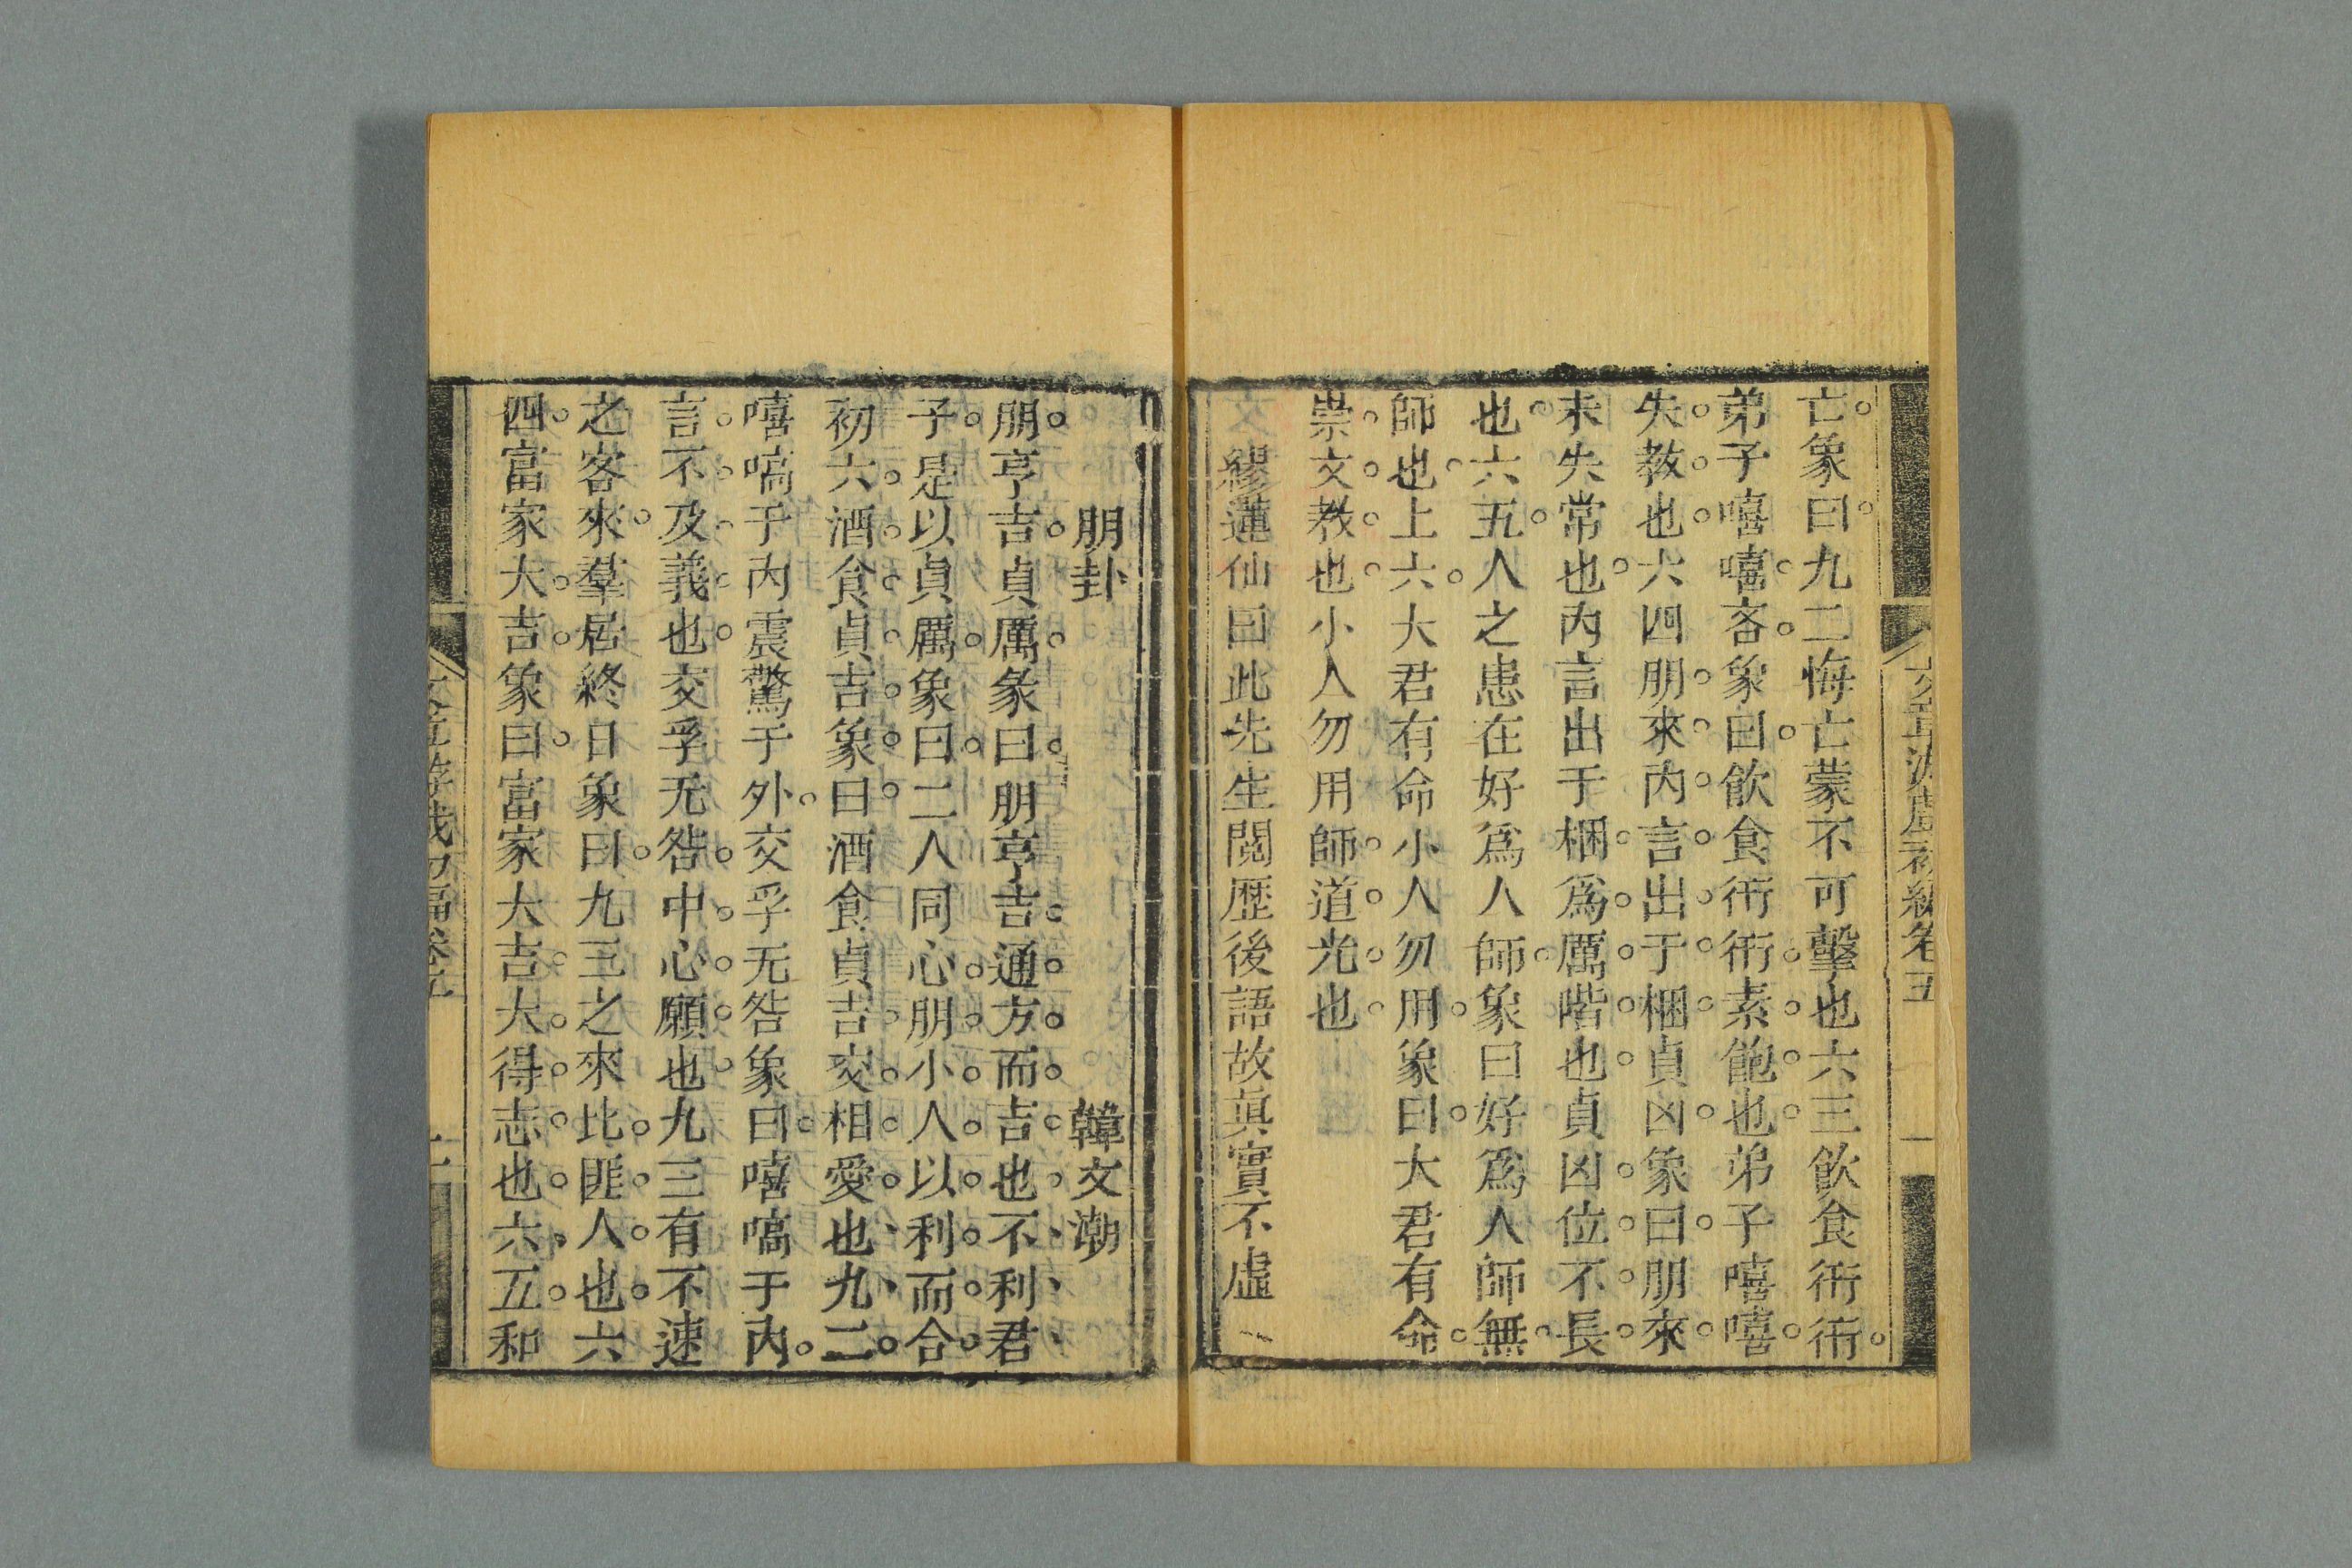 亡象曰九二悔亡蒙不可擊也六三飲食衎衎
弟子嘻嘻吝象曰飲食衎衎素飽也弟子嘻嘻
失教也六四朋來內言出于梱貞凶象曰朋來
未失常也內言出于梱爲厲階也貞凶位不長
也六五人之患在好爲人師象曰好爲人師無
師也上六大君有命小人勿用象曰大君有命
崇文教也小人勿用師道光也
繆蓮仙曰此先生閱歷後語故眞實不虛
朋卦 韓文潮
朋亨吉貞厲彖曰朋亨吉通方而吉也不利君
子是以貞厲象曰二人同心朋小人以利而合
初六酒食貞吉象曰酒食貞吉交相愛也九二
嘻嗃于內震驚于外交孚无咎象曰嘻嗃于內
言不及義也交孚无咎中心願也九三有不速
之客來羣居終日象曰九三之來比匪人也六
四富家大吉象曰富家大吉大得志也六五和